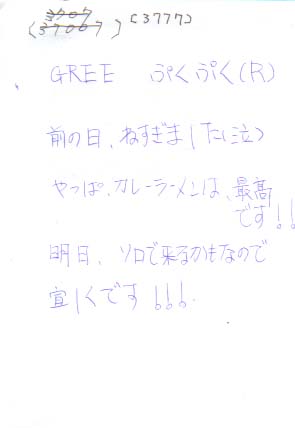 (3777)
GREE ぷくぷく(R)
前の日、ねすぎました(泣)
やっぱ、カレーラーメンは、最高
です!!
明日、ソロで来るかもなので
宜しくです!!!